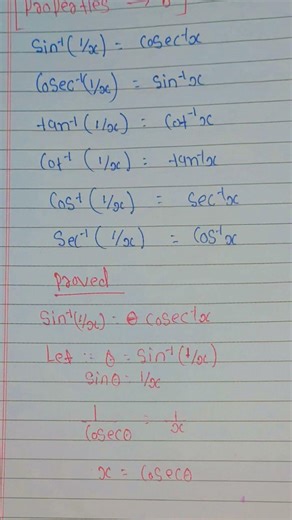 [Properties →
sin⁻¹(1/x) = cosec⁻¹x
cosec⁻¹(1/x) = sin⁻¹x
tan⁻¹(1/x) = cot⁻¹x
cot⁻¹(1/x) = tan⁻¹x
cos⁻¹(1/x) = sec⁻¹x
sec⁻¹(1/x) = cos⁻¹x
Proved
sin⁻¹(1/x) = θ cosec⁻¹x
Let :: θ = sin⁻¹(1/x)
sinθ = 1/x
1/cosecθ = 1/x
x = cosecθ